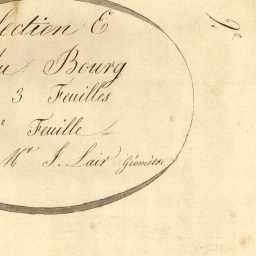 lection E
du Bourg
3 Feuilles
e Feuille
Mr J. Lair Géomètre